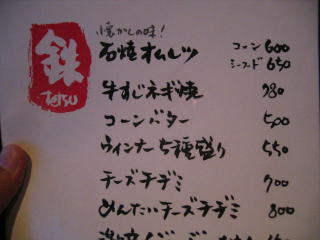 鉄
Tetsu
懐かしの味!
石焼オムレツ コーン 600
シーフード 650
牛すじネギ焼 980
コーンバター 500
ウィンナー5種盛り 550
チーズチヂミ 700
めんたいチーズチヂミ 800